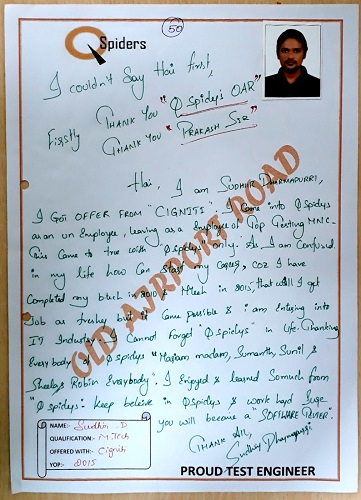 Q Spiders
50
I couldn't Say Hai first,
Firstly THANK YOU "Qspidey's OAR"
THANK YOU "PRAKASH SIR"
Hai, I am SUDHIR DHARMAPURRI,
I GOT OFFER FROM "CIGNITI". I came into Qspidys
as an un Employee, leaving as a Employee of Top Testing MNC.
This came to true with "Qspidey's" only. As I am Confused
in my life how Can Start my Career, coz I have
Completed my btech in 2010 & Mtech in 2015, that will I get
Job as fresher but it came possible & i am Entering into
IT Industry. I Cannot Forget "Qspidys" in Life. Thanking
Everybody of Qspidys "Mariam madam, Sumanth, Sunil &
Sheela, Robin Everybody". I Enjoyed & learned So much from
"Qspidys". Keep beleive in Qspidys & work hard Sure
you will become a "SOFTWARE TESTER".
THANK All,
OLD AIRPORT ROAD
NAME:- Sudhir .D
QUALIFICATION:- M.Tech
OFFERED WITH:- Cigniti
YOP:- 2015
PROUD TEST ENGINEER